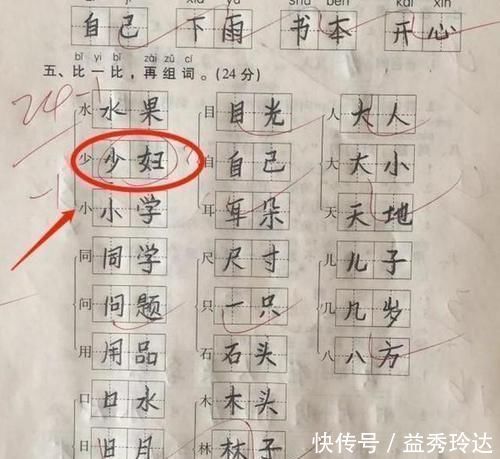 xià yǔ shū běn kāi xīn
自己 下雨 书本 开心
bǐ yi bǐ zài zǔ cí
五、比一比，再组词。(24分)
24-1
水 水果 目 目光 人 大人
少 少妇 自 自己 大 大小
-1
小 小学 耳 耳朵 天 天地
同 同学 尺 尺寸 儿 儿子
问 问题 只 一只 几 几岁
用 用品 石 石头 八 八方
口 口水 木 木头
日 日月 林 林子
快传号／益秀玲达